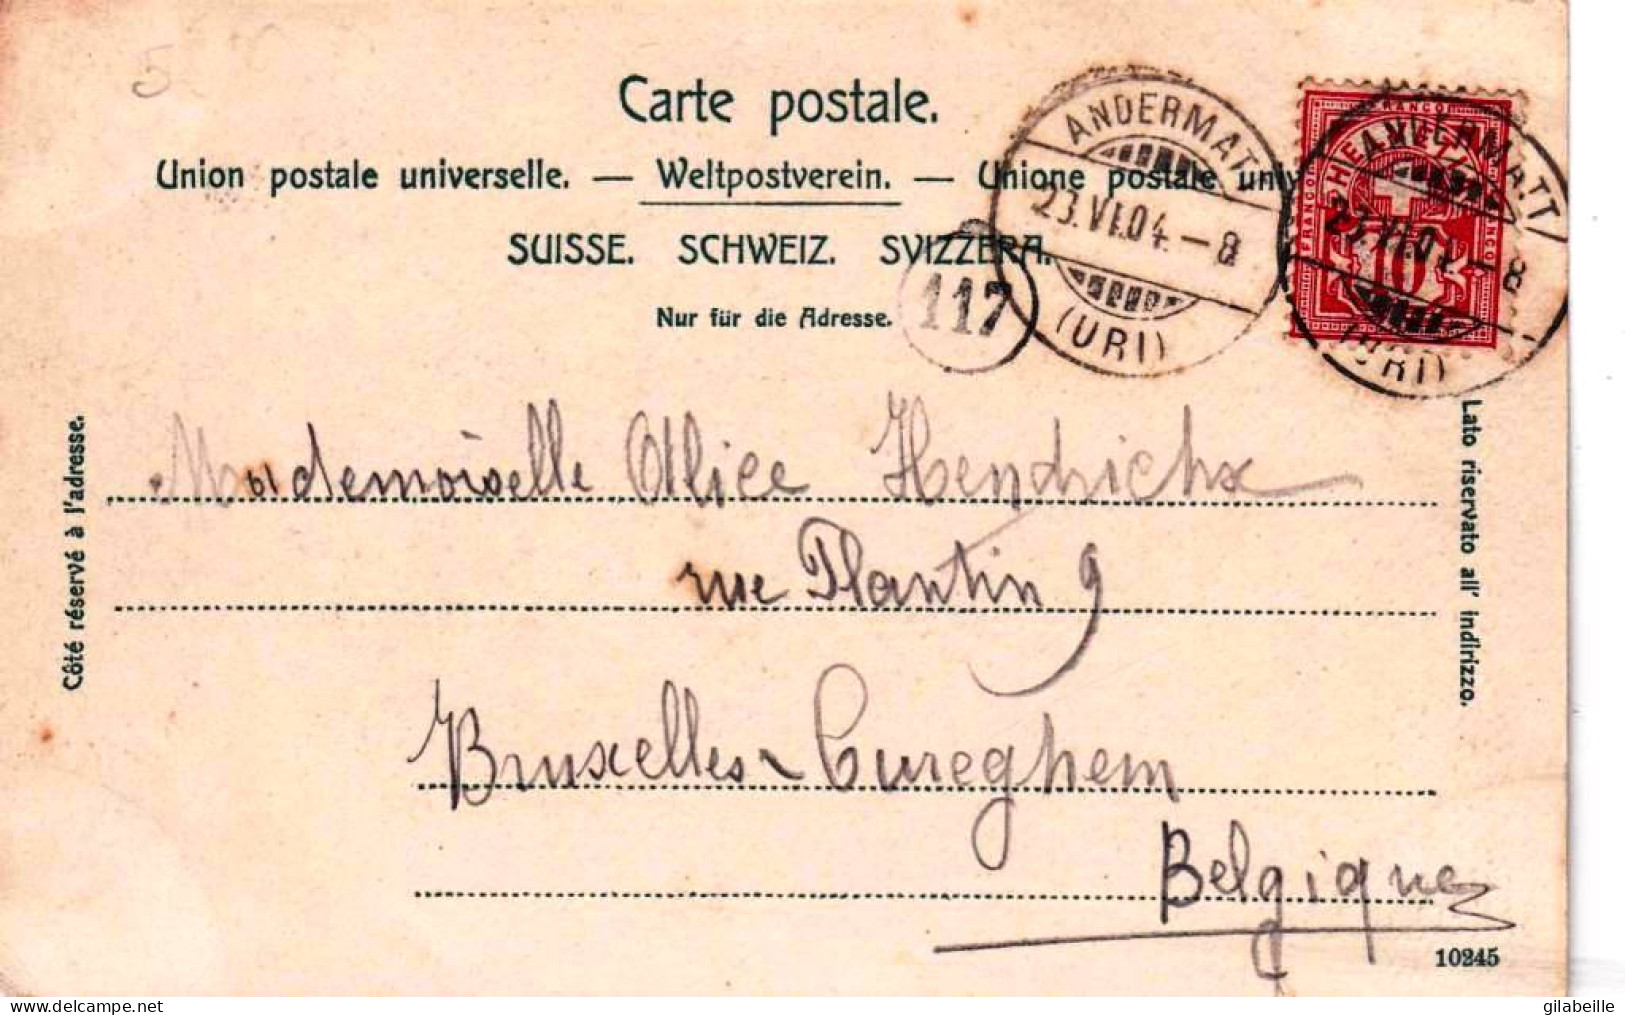 5
Carte postale.
Union postale universelle. — Weltpostverein. — Unione postale univ
SUISSE. SCHWEIZ. SVIZZERA.
Nur für die Adresse.
ANDERMATT
23.VI.04.–8
(URI)
117
FRANCO
HELVETIA
FRANCO
FRANCO
10
ANDERMATT
23.VI.04.–8
(URI)
Côté réservé à l'adresse.
Lato riservato all' indirizzo.
Mademoiselle Alice Hendrickx
rue Plantin 9
Bruxelles - Cureghem
Belgique
10245
gilabeille